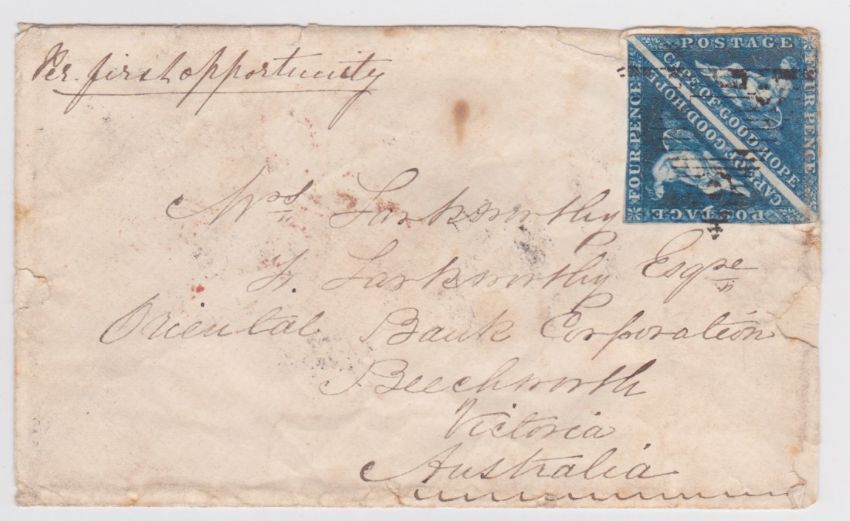 Per first opportunity
POSTAGE
FOUR PENCE
CAPE OF GOOD HOPE
CAPE OF GOOD HOPE
FOUR PENCE
POSTAGE
Mrs Larkworthy
F. Larkworthy Esqre
Oriental Bank Corporation
Beechworth
Victoria
Australia